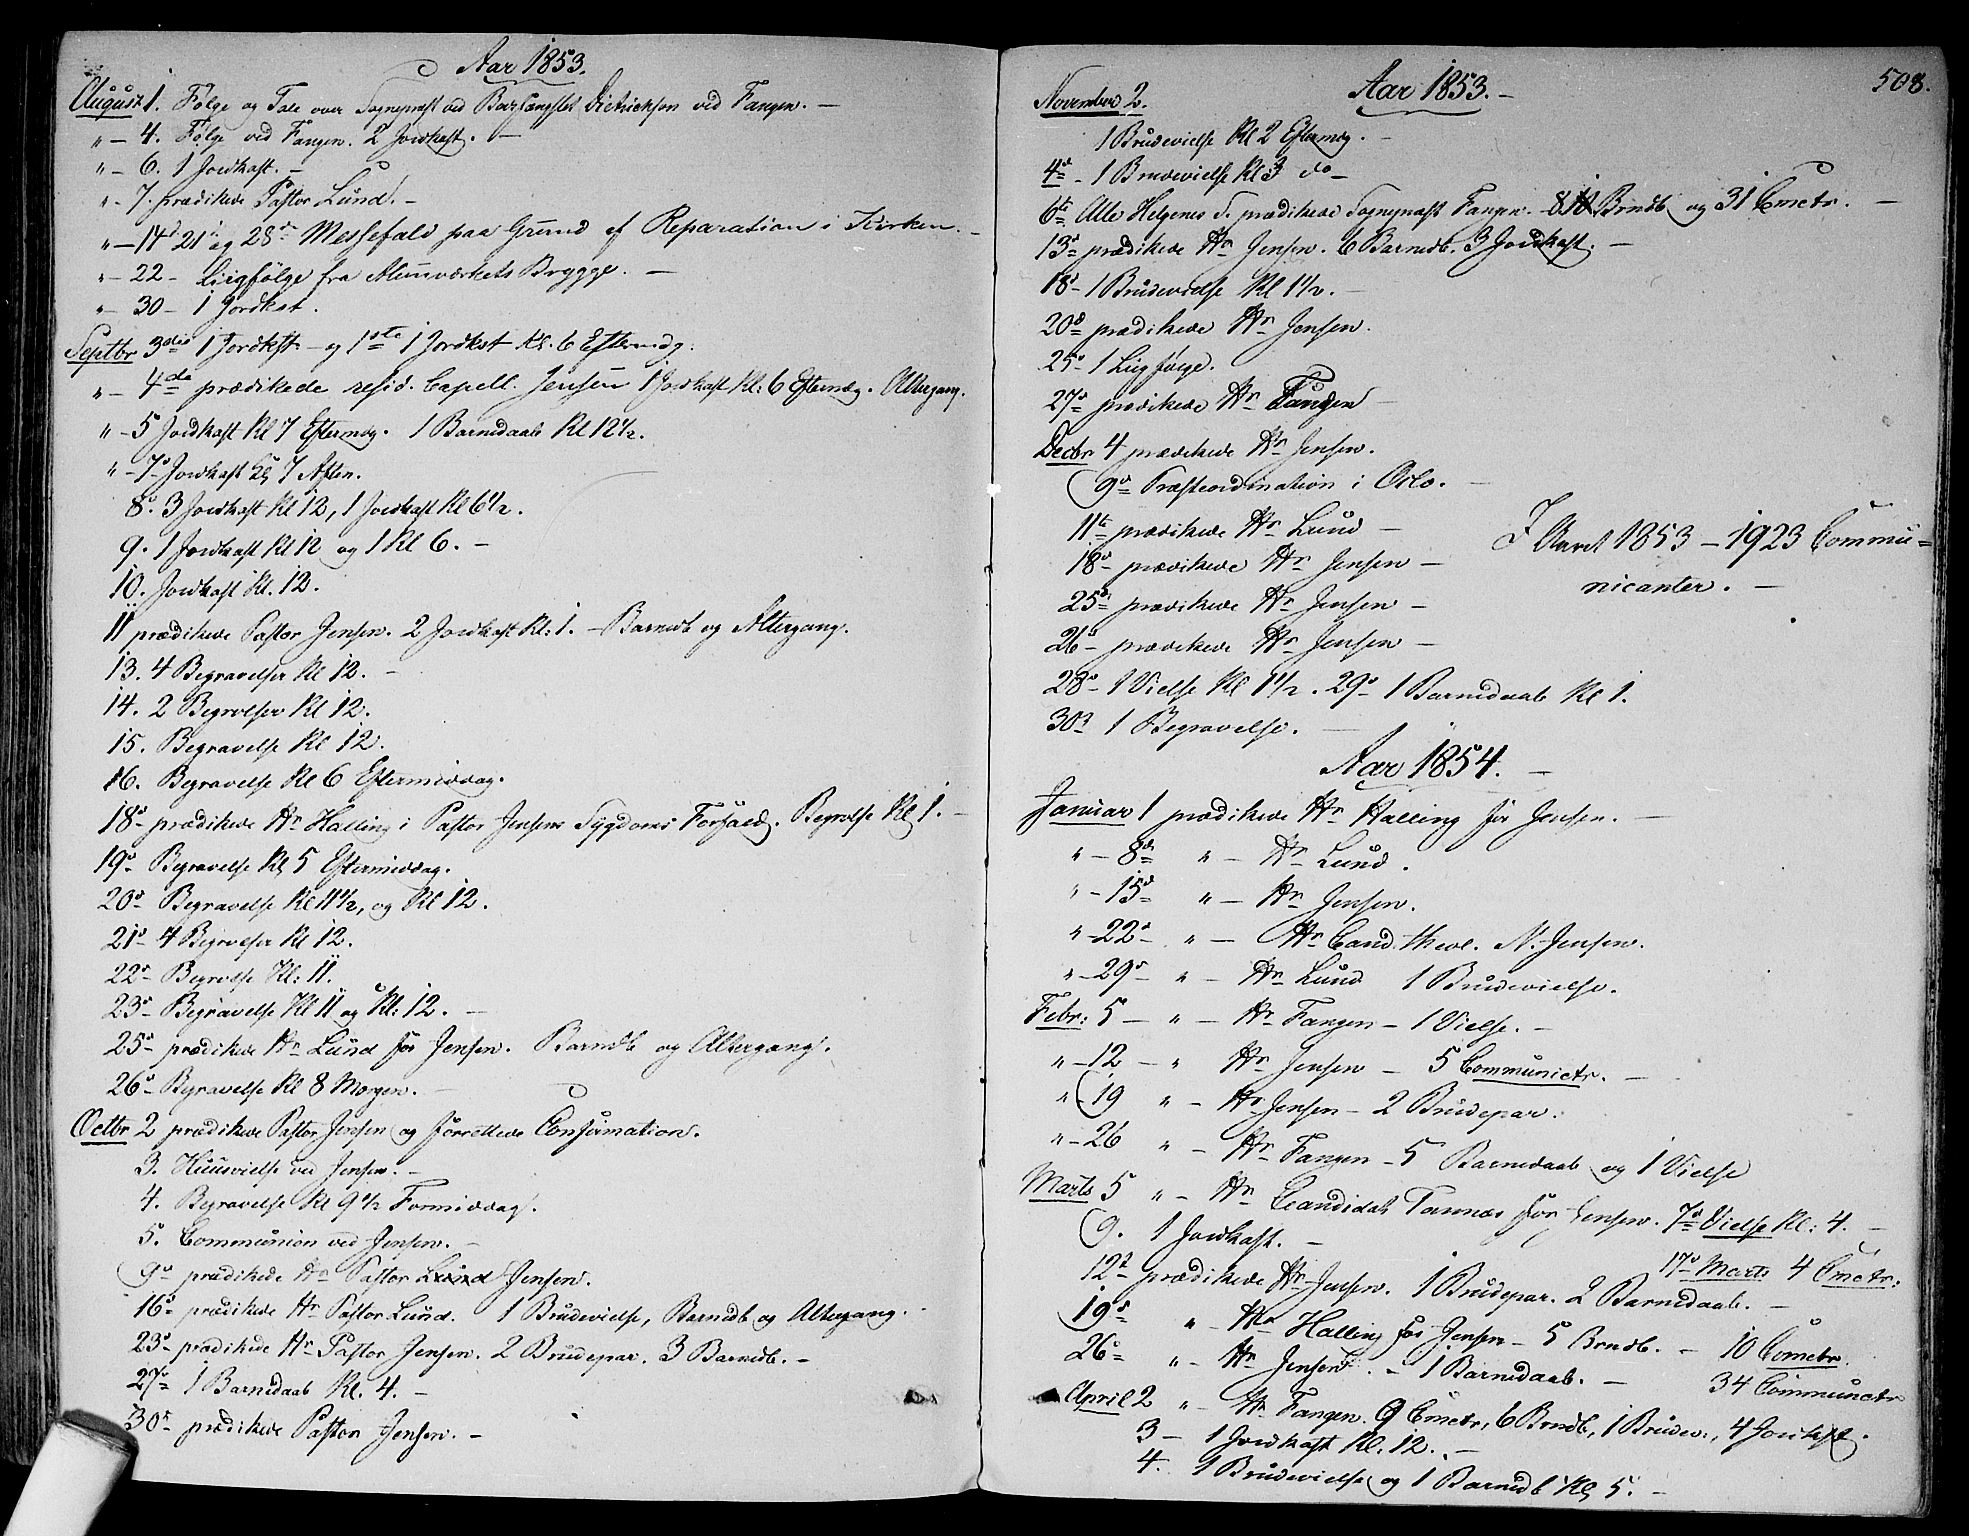 Aar 1853.
August 1. Følge og Tale over Sognepræst ved Dietrichson ved Fangen. —
" — 4. Følge ved Fangen. 2 Jordkast. —
" — 6. 1 Jordkast. —
" — 7. prædikede Pastor Lund. —
" — 14de 21 og 28de Messefald paa Grund af Reparation i Kirken. —
" — 22 — Liigfølge fra Alunværkets Brygge. —
" — 30 — 1 Jordkst.
Septbr 3die 1 Jordkst — og 1ste 1 Jordkst Kl. 6 Eftermdg.
" — 4de prædikede resid. Capell. Jensen 1 Jordkast Kl: 6 Eftermdg. Altergang.
" — 5 Jordkast Kl 7 Eftermdg. 1 Barnedaab Kl 12½.
" — 7de Jordkast Kl 7 Aften.
8de 3 Jordkast Kl 12, 1 Jordkast Kl 6½.
9. 1 Jordkast Kl 12 og 1 Kl 6. —
10. Jordkast Kl. 12.
11 prædikede Pastor Jensen. 2 Jordkast Kl: 1. — Barnedb og Altergang.
13. 4 Begravelser Kl 12. —
14. 2 Begrvlser Kl 12.
15. Begravelse Kl 12.
16. Begravelse Kl 6 Eftermiddag.
18de prædikede Hr Halling i Pastor Jensens Sygdoms Forfald. Begrvlse Kl 1. —
19de Begravelse Kl 5 Eftermiddag.
20de Begravelse Kl 11½, og Kl 12.
21de 4 Begrvlser Kl 12.
22de Begrvlse Kl: 11.
23de Begravelse Kl 11 og Kl: 12. —
25de prædikede Hr Lund for Jensen. Barndb og Altergang.
26de Begravelse Kl 8 Morgen. —
Octbr 2 prædikede Pastor Jensen og forrettede Confirmation.
3. Huusvielse ved Jensen. —
4. Begravelse Kl 9½ Formiddag.
5. Communion ved Jensen. —
9de prædikede Hr Pastor Lund Jensen.
16de prædikede Hr Pastor Lund. 1 Brudevielse, Barnedb og Altergang. —
23de prædikede Hr Pastor Jensen. 2 Brudepar. 3 Barnedb. —
27de 1 Barnedaab Kl. 4. —
30te prædikede Pastor Jensen. —
508.
Aar 1853. —
November 2.
1 Brudevielse Kl 2 Eftermdg. —
4de — 1 Brudevielse Kl 3 do —
6te Alle Helgenes S. prædikede Sognepræst Fangen. 8 Brndb og 31 Cmctr. —
13de prædikede Hr Jensen. 6 Barnedb. 3 Jordkast. —
18de — 1 Brudevielse Kl 1½. —
20de prædikede Hr Jensen.
25de 1 Liigfølge.
27de prædikede Hr Fangen —
Decbr 4 prædikede Hr Jensen.
9de Præsteordination i Oslo. —
11te prædikede Hr Lund —
18de prædikede Hr Jensen —
25de prædikede Hr Jensen —
26de prædikede Hr Jensen —
28de 1 Vielse Kl 1½. 29de 1 Barnedaab Kl 1.
30te 1 Begravelse. —
I Aaret 1853 — 1923 Commu=
nicanter. —
Aar 1854. —
Januar 1 prædikede Hr Halling for Jensen. —
" — 8de " — Hr Lund.
" — 15de " — Hr Jensen.
" — 22de " — Hr Cand. theol. N. Jensen.
" — 29de " — Hr Lund 1 Brudevielse.
Febr: 5 — " — Hr Fangen — 1 Vielse. —
" — 12 — " Hr Jensen — 5 Communictr. —
" 19 " — Hr Jensen — 2 Brudepar.
" — 26 " — Hr Fangen — 5 Barnedaab og 1 Vielse
Marts 5 " — Hr Candidat for Jensen. 7de Vielse Kl: 4. —
9. 1 Jordkast. —
17de Marts 4 Cmctr:
12te prædikede Hr Jensen. 1 Brudepar. 2 Barnedaab. —
19de " — Hr Halling for Jensen — 5 Brndb. — 10 Comctr.
26de " — Hr Jensen. — 1 Barnedaab. — 34 Communctr
April 2 " — Hr Fangen. 9 Cmctr, 6 Brndb, 1 Brudev:, 4 Jordkst.
3 — 1 Jordkast Kl. 12. —
4. 1 Brudevielse og 1 Barnedb Kl 5. —